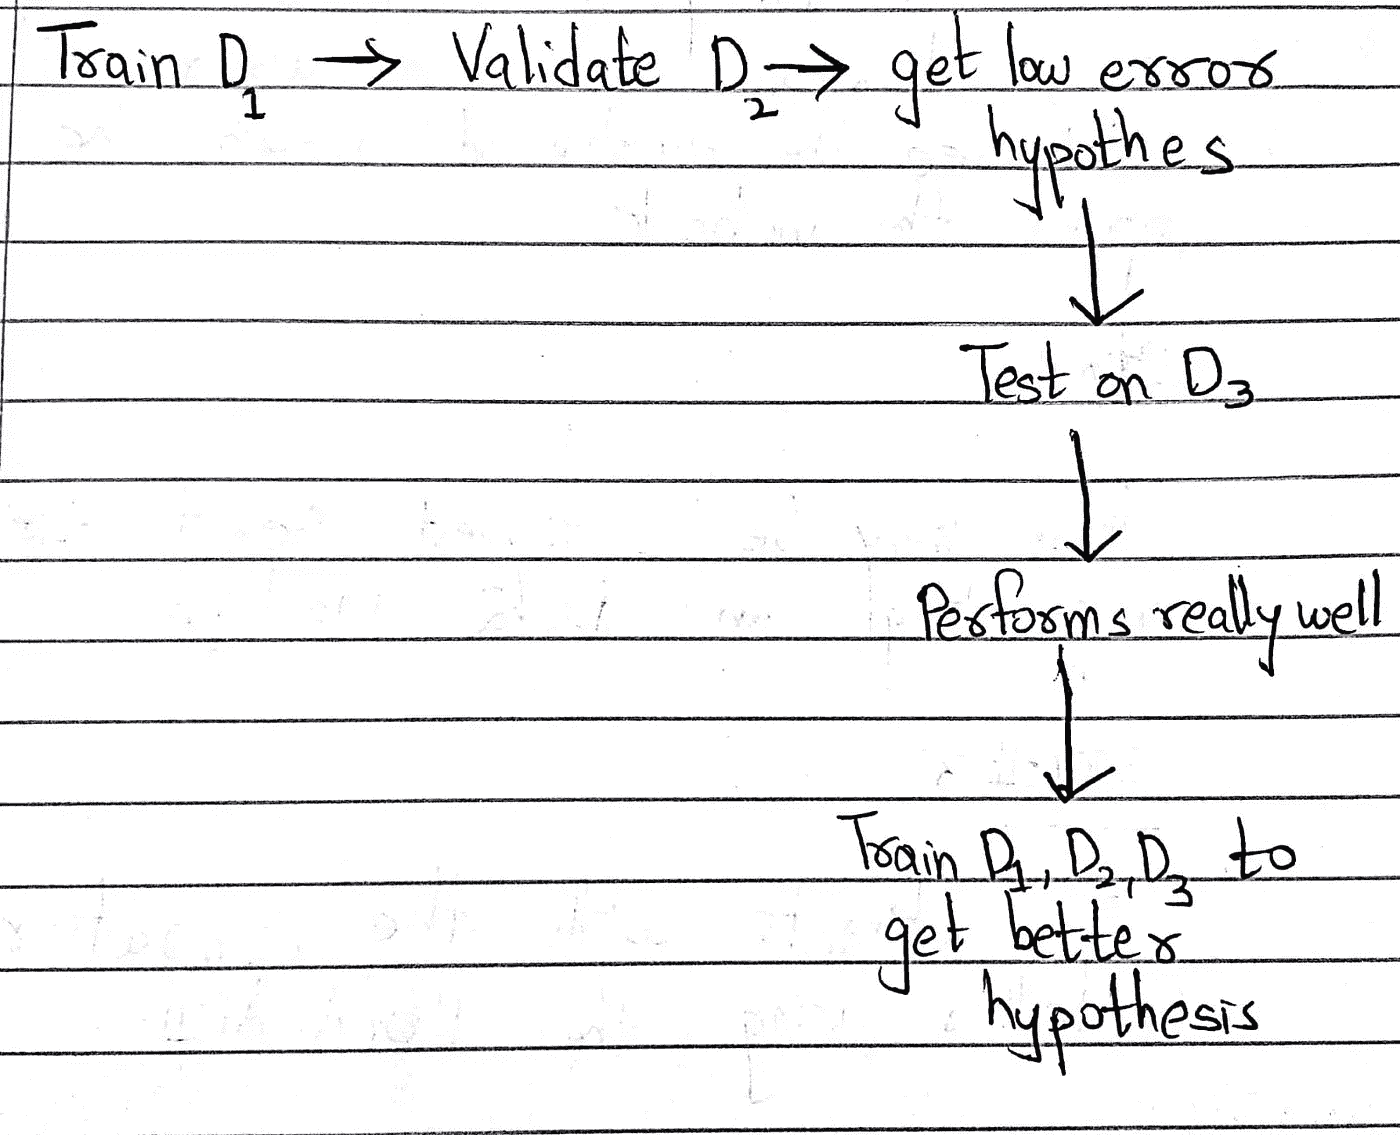 Train D1 → Validate D2 → get low error
hypothes
Test on D3
Performs really well
Train D1, D2, D3 to
get better
hypothesis